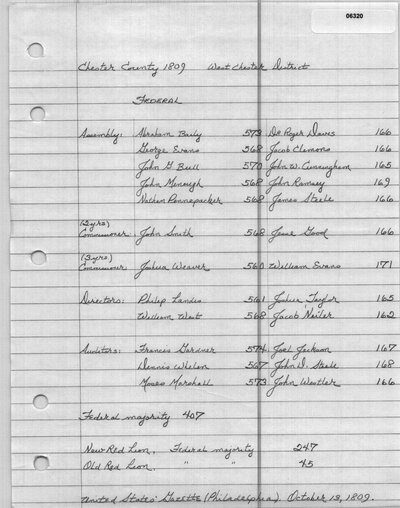 06320
Chester County 1809 West Chester District
FEDERAL
Assembly: Abraham Baily 573 Dr Roger Davis 166
George Evans 568 Jacob Clemons 166
John G Bull 570 John W. Cunningham 165
John Menough 568 John Ramsey 169
Nathan Pennepacker 568 James Steele 166
(2 yrs)
Commissioner: John Smith 568 Jesse Good 166
(3 yrs)
Commissioner: Joshua Weaver 560 William Evans 171
Directors: Philip Landes 561 Taylor 165
William West 568 Jacob Neiler 162
Auditors: Francis Gardner 574 Joel Jackson 167
Dennis Whelen 567 John D. Steele 168
Moses Marshall 573 John 166
Federal majority 407
New Red Lion, Federal majority 247
Old Red Lion, " " 45
United States' Gazette (Philadelphia). October 13, 1809.